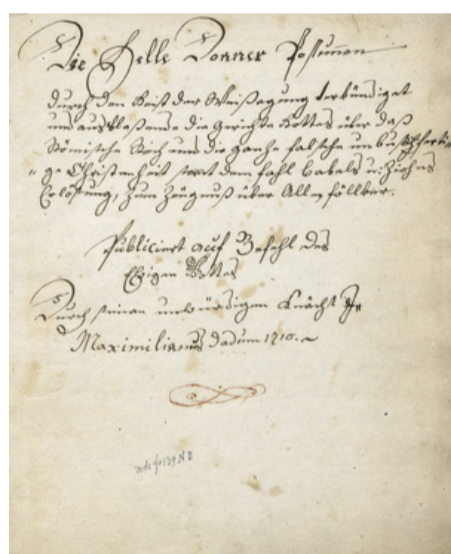 Die Helle Donner Possunnen
durch den Geist der Weissagung verkündiget
und aus die gerichte Gottes über daß
Römische Reich und die gantze falsche unbußfferti
ge Christenheit samt dem fahl Babels u: Zions
Erlösung, zum Zeügnuß über Alle föllker.
Publiciert auf Befehl des
Ewigen Gottes
Durch seinen unwürdigen Knächt
Maximilianus dadum 1710.